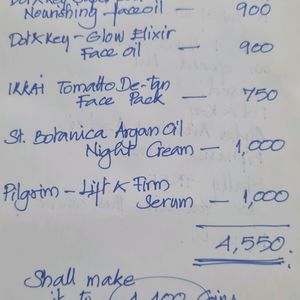 Nourishing face oil — 900
Dot & Key — Glow Elixir
Face Oil — 900
IRRAI Tomatto De-tan
Face Pack — 750
St. Botanica Argan Oil
Night Cream — 1,000
Pilgrim — Lift & Firm
Serum — 1,000
4,550.
Shall make
it to 4,400